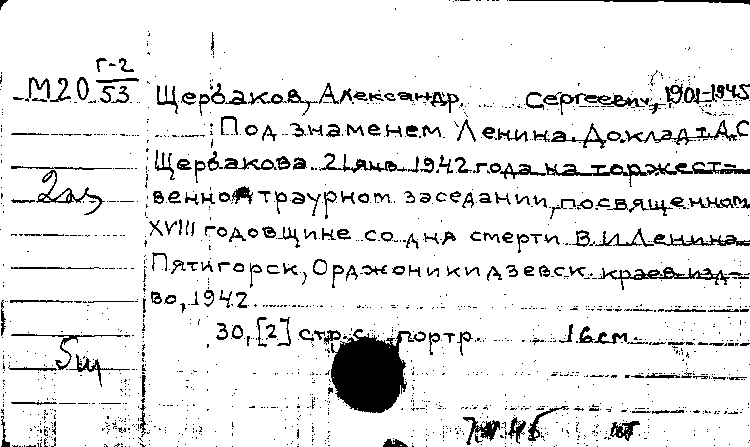 М20 Г-2/53
Щербаков, Александр Сергеевич, 1901-1945
Под знаменем Ленина. Доклад т. А.С
Щербакова 21 янв 1942 года на торжест-
венно траурном заседании, посвященном
XVIII годовщине со дня смерти В.И Ленина
Пятигорск, Орджоникидзевск. краев изд-
во, 1942.
30, [2] стр. с портр. 16 см.